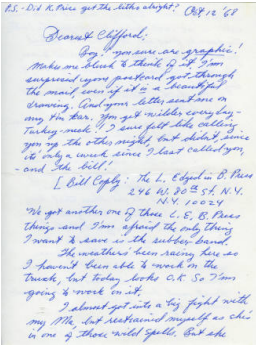 P.S. - Did K. Price get the liths alright? Oct 12 '68
Dearest Clifford;
Boy! you sure are graphic!
Makes me blush to think of it. I'm
surprised your postcard got through
the mail even if it is a beautiful
drawing. And your letter sent me on
my star. You get wilder everyday -
Turkey-neck! I sure felt like calling
you up the other night, but didn't, since
its only a week since I last called you,
- and the bill!
[ Bill Copley: The L. Edged in B. Press
246 W. 80th St. N.Y.
N.Y. 10024
We got another one of those L.E.B. Press
things and I'm afraid the only thing
I want to save is the rubber band.
The weathers been rainy here so
I haven't been able to work on the
truck, but today looks O.K. So I'm
going to work on it.
I almost got into a big fight with
my Ma, but restrained myself as she
in one of those wild spells. But she